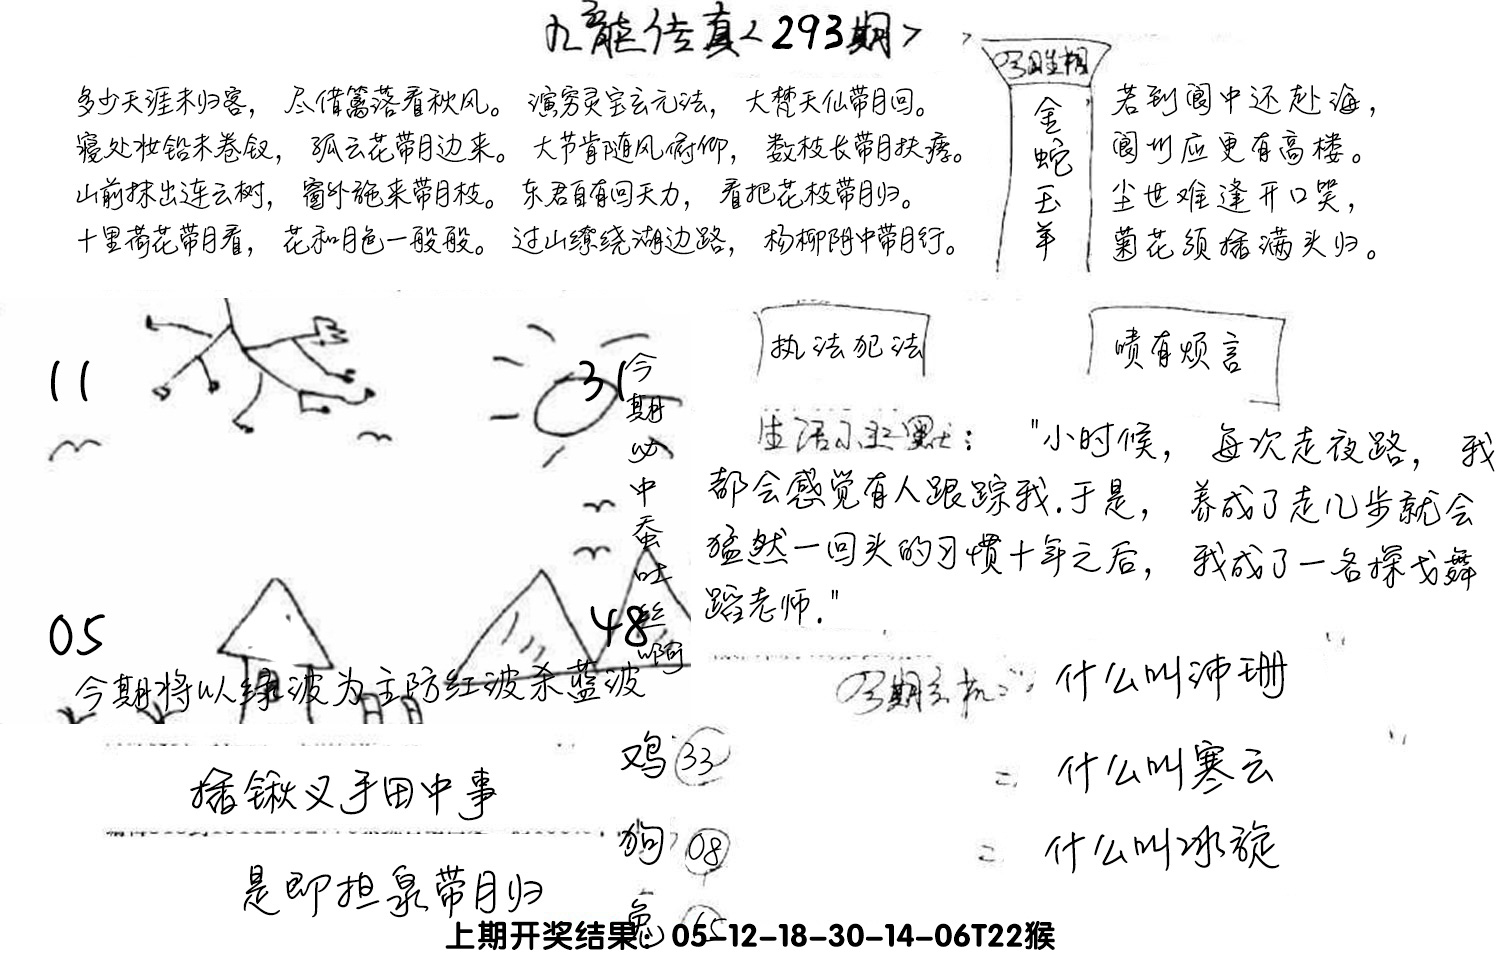 九龙传真<293期>
多少天涯未归客，尽借篱落看秋风。演穷灵宝玄元法，大梵天仙带月回。
寝处妆铅未卷钗，孤云花带月边来。大节肯随风俯仰，数枝长带月扶疏。
山前抹出连云树，窗外施来带月枝。东君自有回天力，看把花枝带月归。
十里荷花带月看，花和月色一般般。过山缭绕湖边路，杨柳阴中带月行。
金蛇玉羊
若到阆中还赴海，
阆州应更有高楼。
尘世难逢开口笑，
菊花须插满头归。
11
31
05
48
今期必中蚕吐丝啊
今期将以绿波为主防红波杀蓝波
执法犯法
啧有烦言
生活小幽默："小时候，每次走夜路，我
都会感觉有人跟踪我.于是，养成了走几步就会
猛然一回头的习惯十年之后，我成了一名探戈舞
蹈老师."
插锹叉手田中事
是即担泉带月归
鸡 33
狗 08
兔
什么叫沛珊
= 什么叫寒云
= 什么叫冰旋
上期开奖结果：05-12-18-30-14-06T22猴